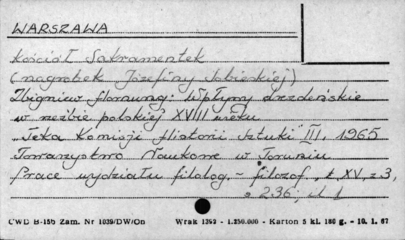 WARSZAWA
Kościół Sakramentek
(nagrobek Józefiny Sobieskiej)
Zbigniew Hornung: Wpływy drezdeńskie
w rzeźbie polskiej XVIII wieku
"Teka Komisji Historii Sztuki" III, 1965
Towarzystwo Naukowe w Toruniu
Prace wydziału filolog. - filozof., t. XV, z 3,
s 236; il 1
CWD B-15b Zam. Nr 1039/DW/On Wrak 1392 - 1.250.000 - Karton 5 kl. 180 g. - 10. 1. 67